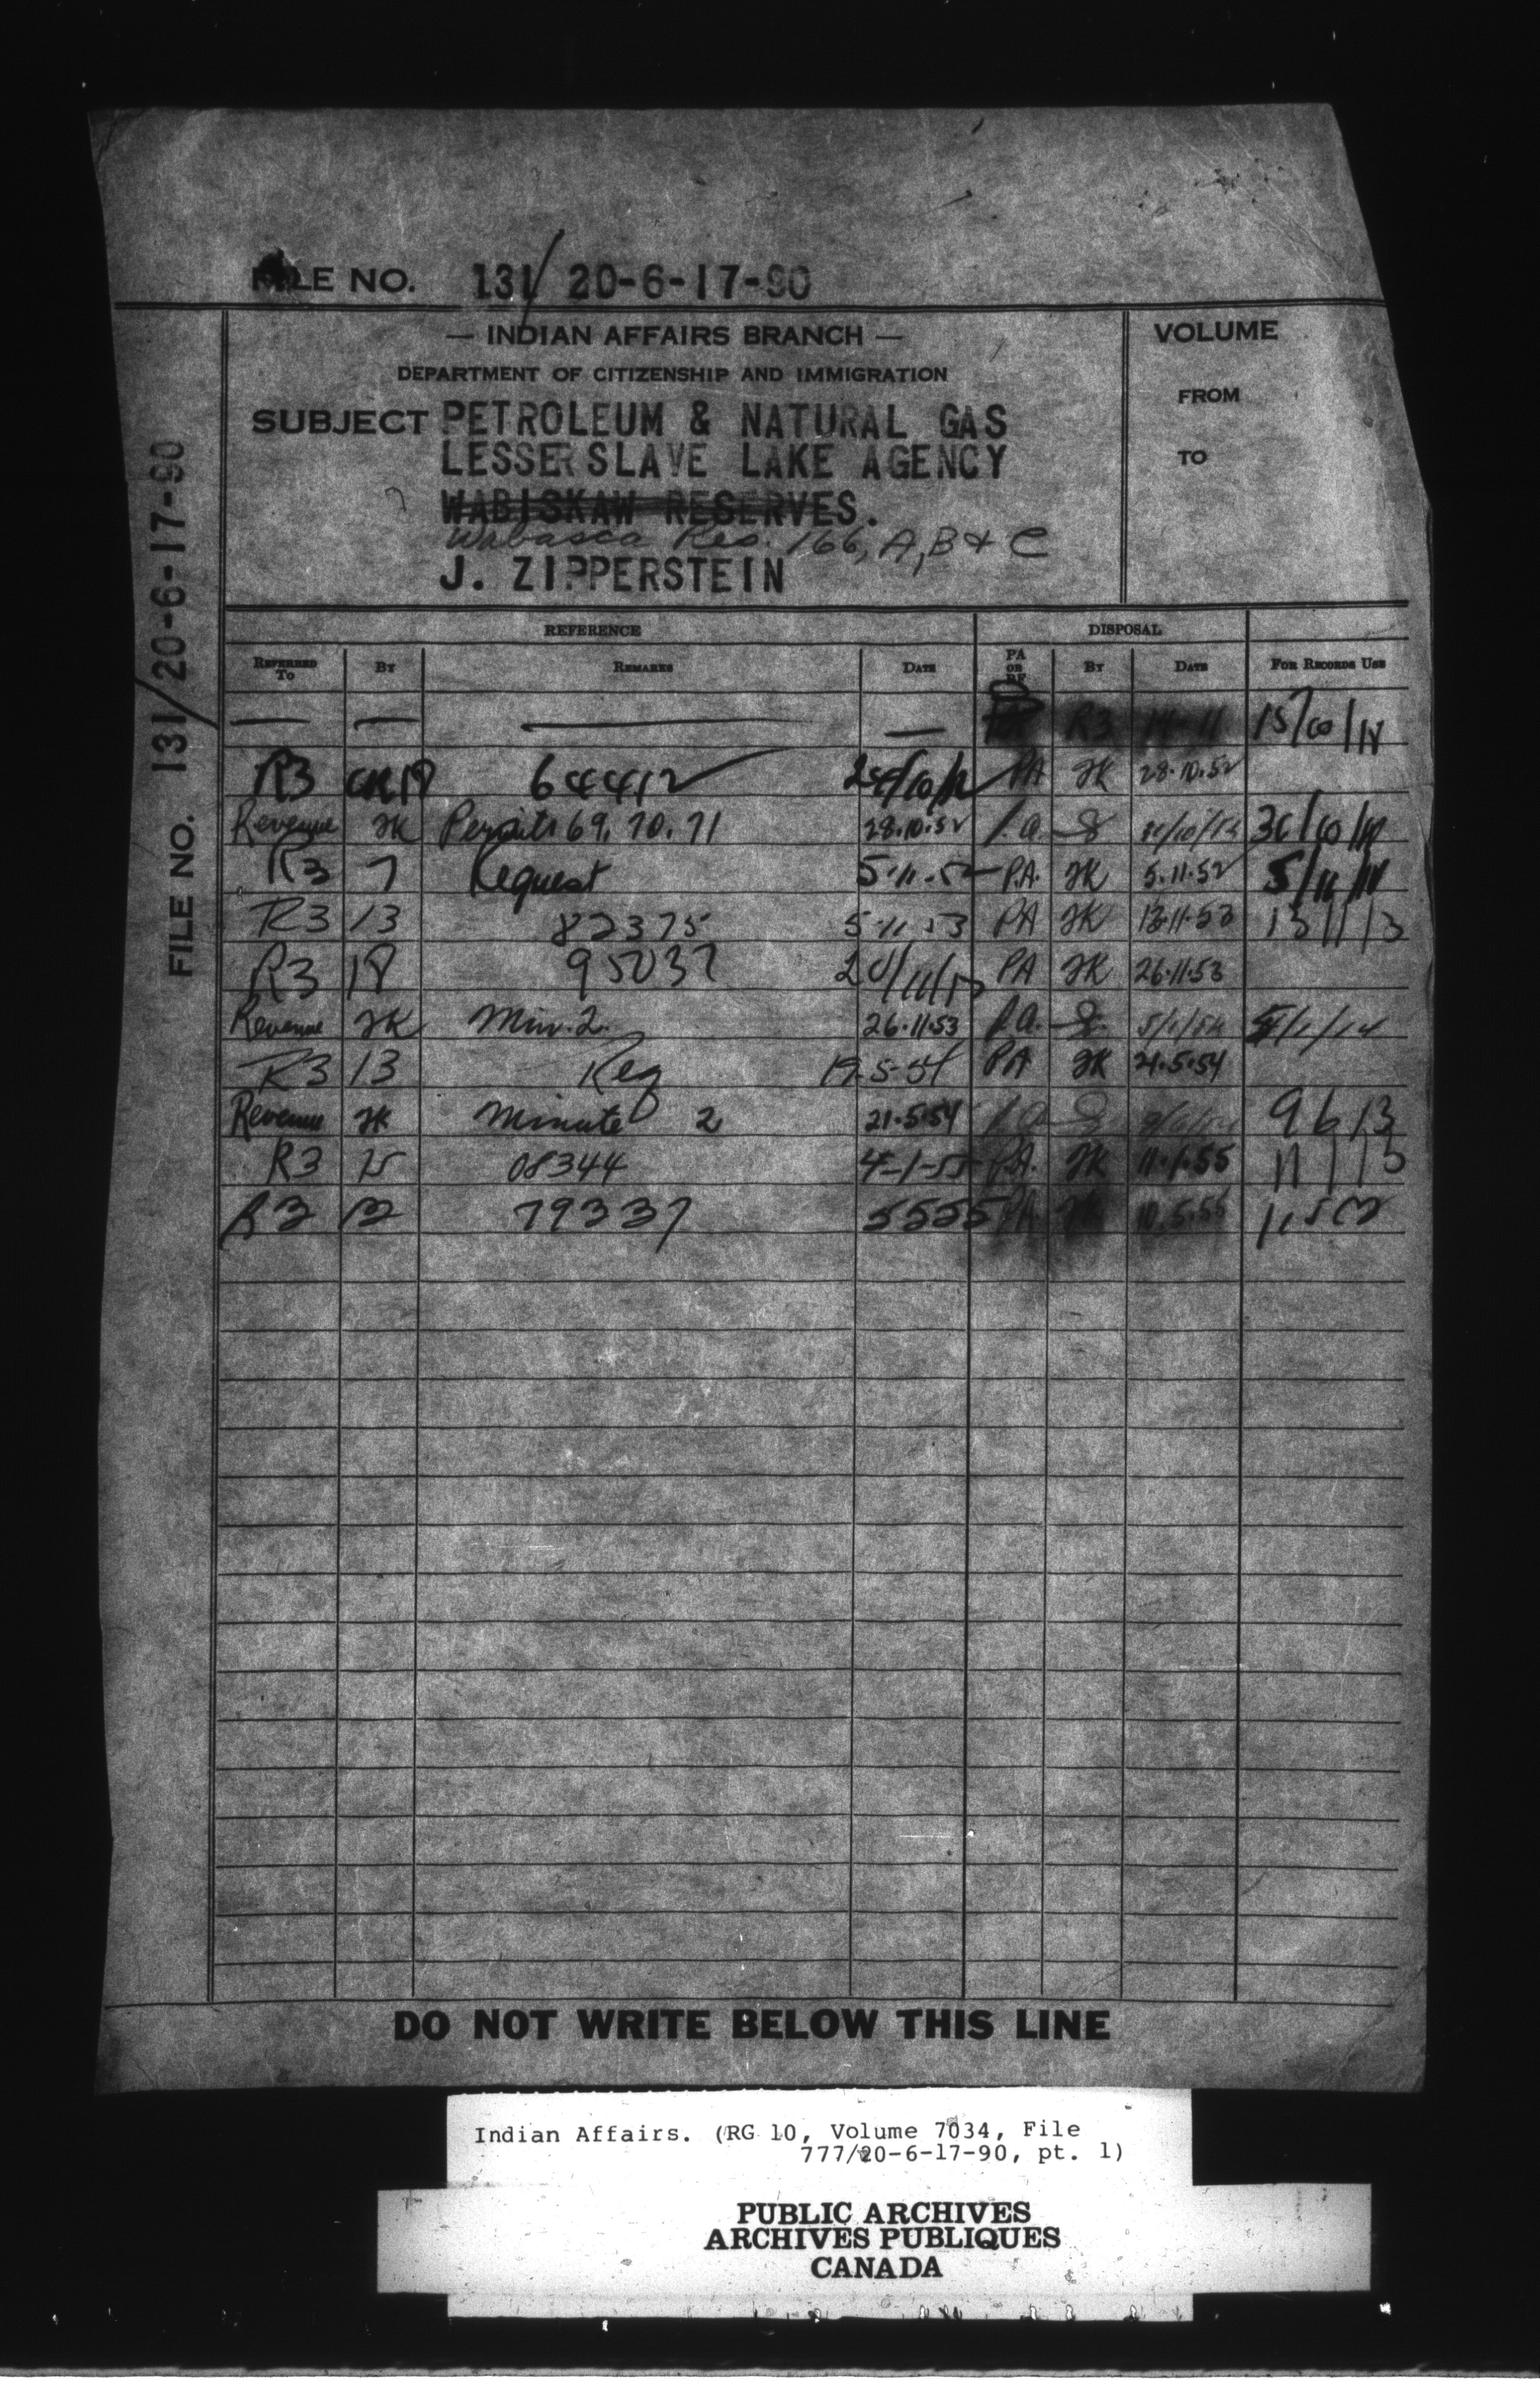 FILE NO. 131/20-6-17-90
FILE NO. 131/20-6-17-90
— INDIAN AFFAIRS BRANCH —
DEPARTMENT OF CITIZENSHIP AND IMMIGRATION
SUBJECT PETROLEUM & NATURAL GAS
LESSER SLAVE LAKE AGENCY
WABISKAW RESERVES.
Wabasca Res. 166, A, B & C
J. ZIPPERSTEIN
VOLUME
FROM
TO
REFERENCE DISPOSAL
REFERRED TO BY REMARKS DATE PA OR BF BY DATE FOR RECORDS USE
— — — — R3 14-11
R3 64412 PA JK 28.10.52
Revenue JK Permits 69, 70, 71 28.10.52 P.A.
R3 7 Request 5-11-52 P.A. JK 5.11.52
R3 13 82375 5 11 53 PA JK 13.11.53
R3 18 95037 PA JK 26.11.53
Revenue JK Min. 2. 26.11.53 P.A.
R3 13 Req 19-5-54 PA JK 21.5.54
Revenue JK Minute 2 21.5.54 P.A. 9 6 13
R3 15 08344 4-1-55 P.A. JK 11.1.55
R3 13 79337 5555 PA JK 10.5.55
DO NOT WRITE BELOW THIS LINE
Indian Affairs. (RG 10, Volume 7034, File
777/20-6-17-90, pt. 1)
PUBLIC ARCHIVES
ARCHIVES PUBLIQUES
CANADA